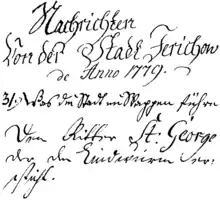 Nachrichten
Von der Stadt Jerichow
de Anno 1779.
3/. Was die Stadt im Wappen führe
Den Ritter St. George
der den Lindwurm